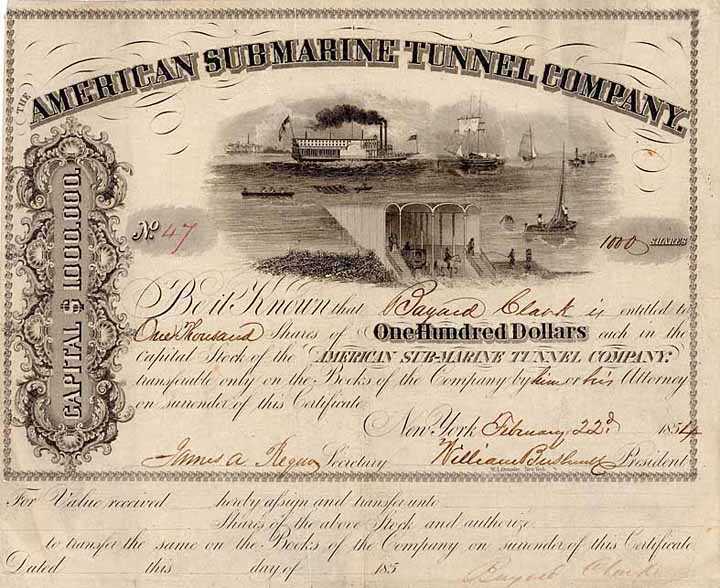 THE AMERICAN SUB-MARINE TUNNEL COMPANY.
CAPITAL $1.000.000.
No 47
1000 SHARES
Be it Known that Bayard Clark is entitled to
One Thousand Shares of One Hundred Dollars each in the
Capital Stock of the AMERICAN SUB-MARINE TUNNEL COMPANY:
transferable only on the Books of the Company by him or his Attorney
on surrender of this Certificate
New York February 22d. 1854
James A Secretary William President
For Value received hereby assign and transfer unto
Shares of the above Stock and authorize
to transfer the same on the Books of the Company on surrender of this Certificate
Dated this day of 185
Bayard Clark